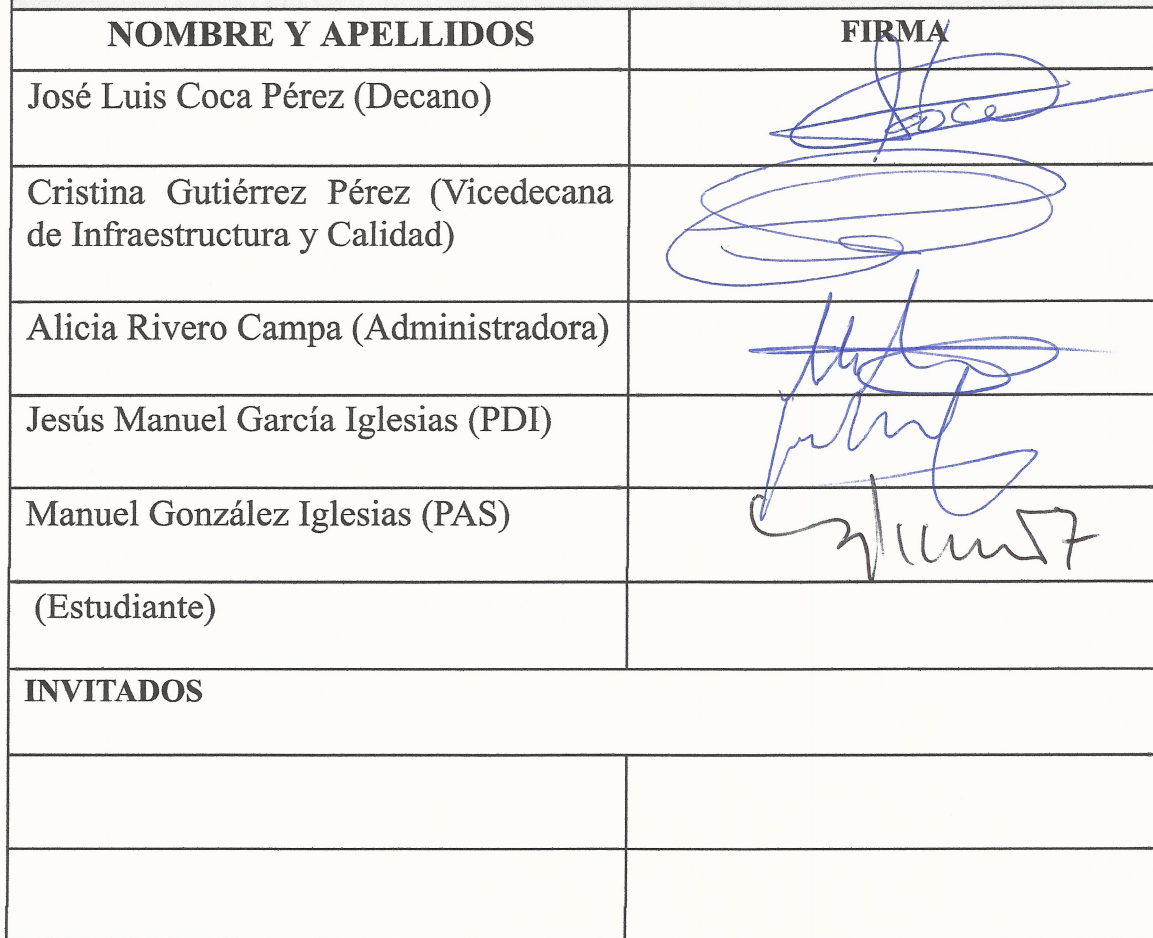 NOMBRE Y APELLIDOS
FIRMA
José Luis Coca Pérez (Decano)
Coca
Cristina Gutiérrez Pérez (Vicedecana
de Infraestructura y Calidad)
Alicia Rivero Campa (Administradora)
Jesús Manuel García Iglesias (PDI)
Manuel González Iglesias (PAS)
(Estudiante)
INVITADOS